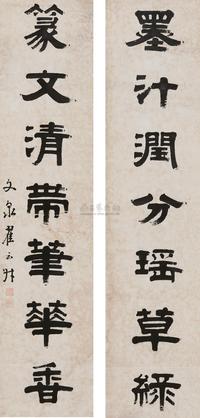 墨汁潤分瑶草綠
篆文清帶筆華香
文泉翟云升